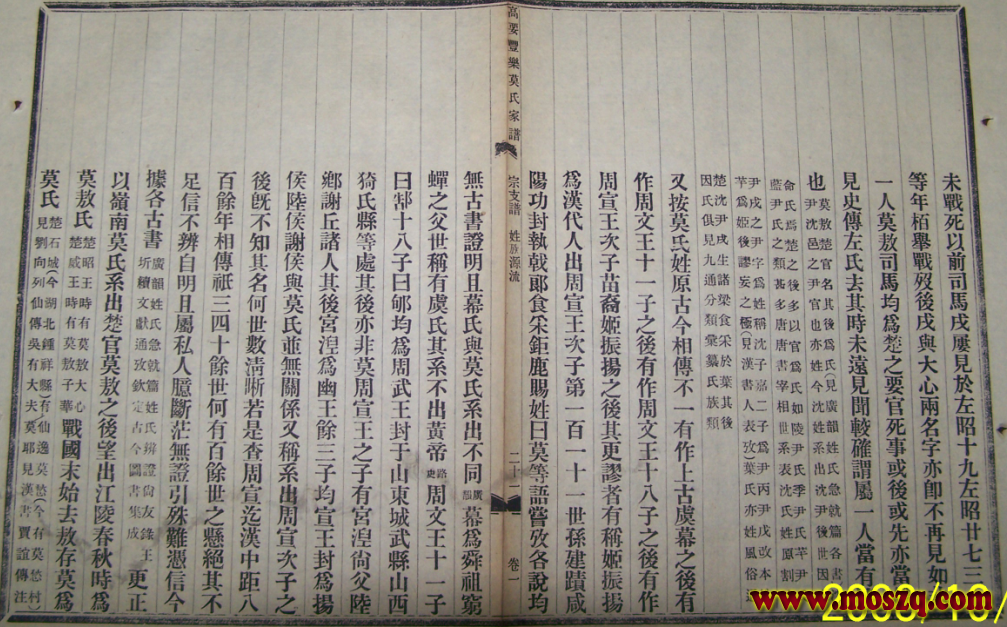 未戰死以前司馬戌屢見於左昭十九左昭廿七三
等年栢舉戰歿後戌與大心兩名字亦卽不再見如
一人莫敖司馬均爲楚之要官死事或後或先亦當
見史傳左氏去其時未遠見聞較確謂屬一人當有
也
尹戌之尹字爲姓稱沈子嘉二子爲尹丙尹戊改本
芊爲姬後謬妄之極
楚沈尹戌生諸梁食采於葉其後
因氏俱見九通分類彙纂氏族類
又按莫氏姓原古今相傳不一有作上古虞幕之後有
作周文王十一子之後有作周文王十八子之後有作
周宣王次子苗裔姬振揚之後其更謬者有稱姬振揚
爲漢代人出周宣王次子第一百一十一世孫建蹟咸
陽功封執戟郞食采鉅鹿賜姓曰莫等語嘗攷各說均
高要豐樂莫氏家譜
宗支譜 姓族源流
二十
卷一
無古書證明且幕氏與莫氏系出不同廣韻幕爲舜祖窮
蟬之父世稱有虞氏其系不出黃帝路史周文王十一子
曰郜十八子曰郇均爲周武王封于山東城武縣山西
猗氏縣等處其後亦非莫周宣王之子有宮湼尙父陸
鄕謝丘諸人其後宮湼爲幽王餘三子均宣王封爲揚
侯陸侯謝侯與莫氏並無關係又稱系出周宣次子之
後旣不知其名何世數淸晰若是查周宣迄漢中距八
百餘年相傳祇三四十餘世何有百餘世之懸絕其不
足信不辨自明且屬私人臆斷茫無證引殊難憑信今
據各古書廣韻姓氏急就篇姓氏辨證尙友錄王圻續文獻通攷欽定古今圖書集成更正
以嶺南莫氏系出楚官莫敖之後望出江陵春秋時爲
莫敖氏楚昭王時有莫敖大心楚威王時有莫敖子華戰國末始去敖存莫爲
莫氏楚石城(今湖北鍾祥縣)有仙逸莫愁(今有莫愁村)見劉向列仙傳吳有大夫莫耶見漢書賈誼傳注
www.moszq.com